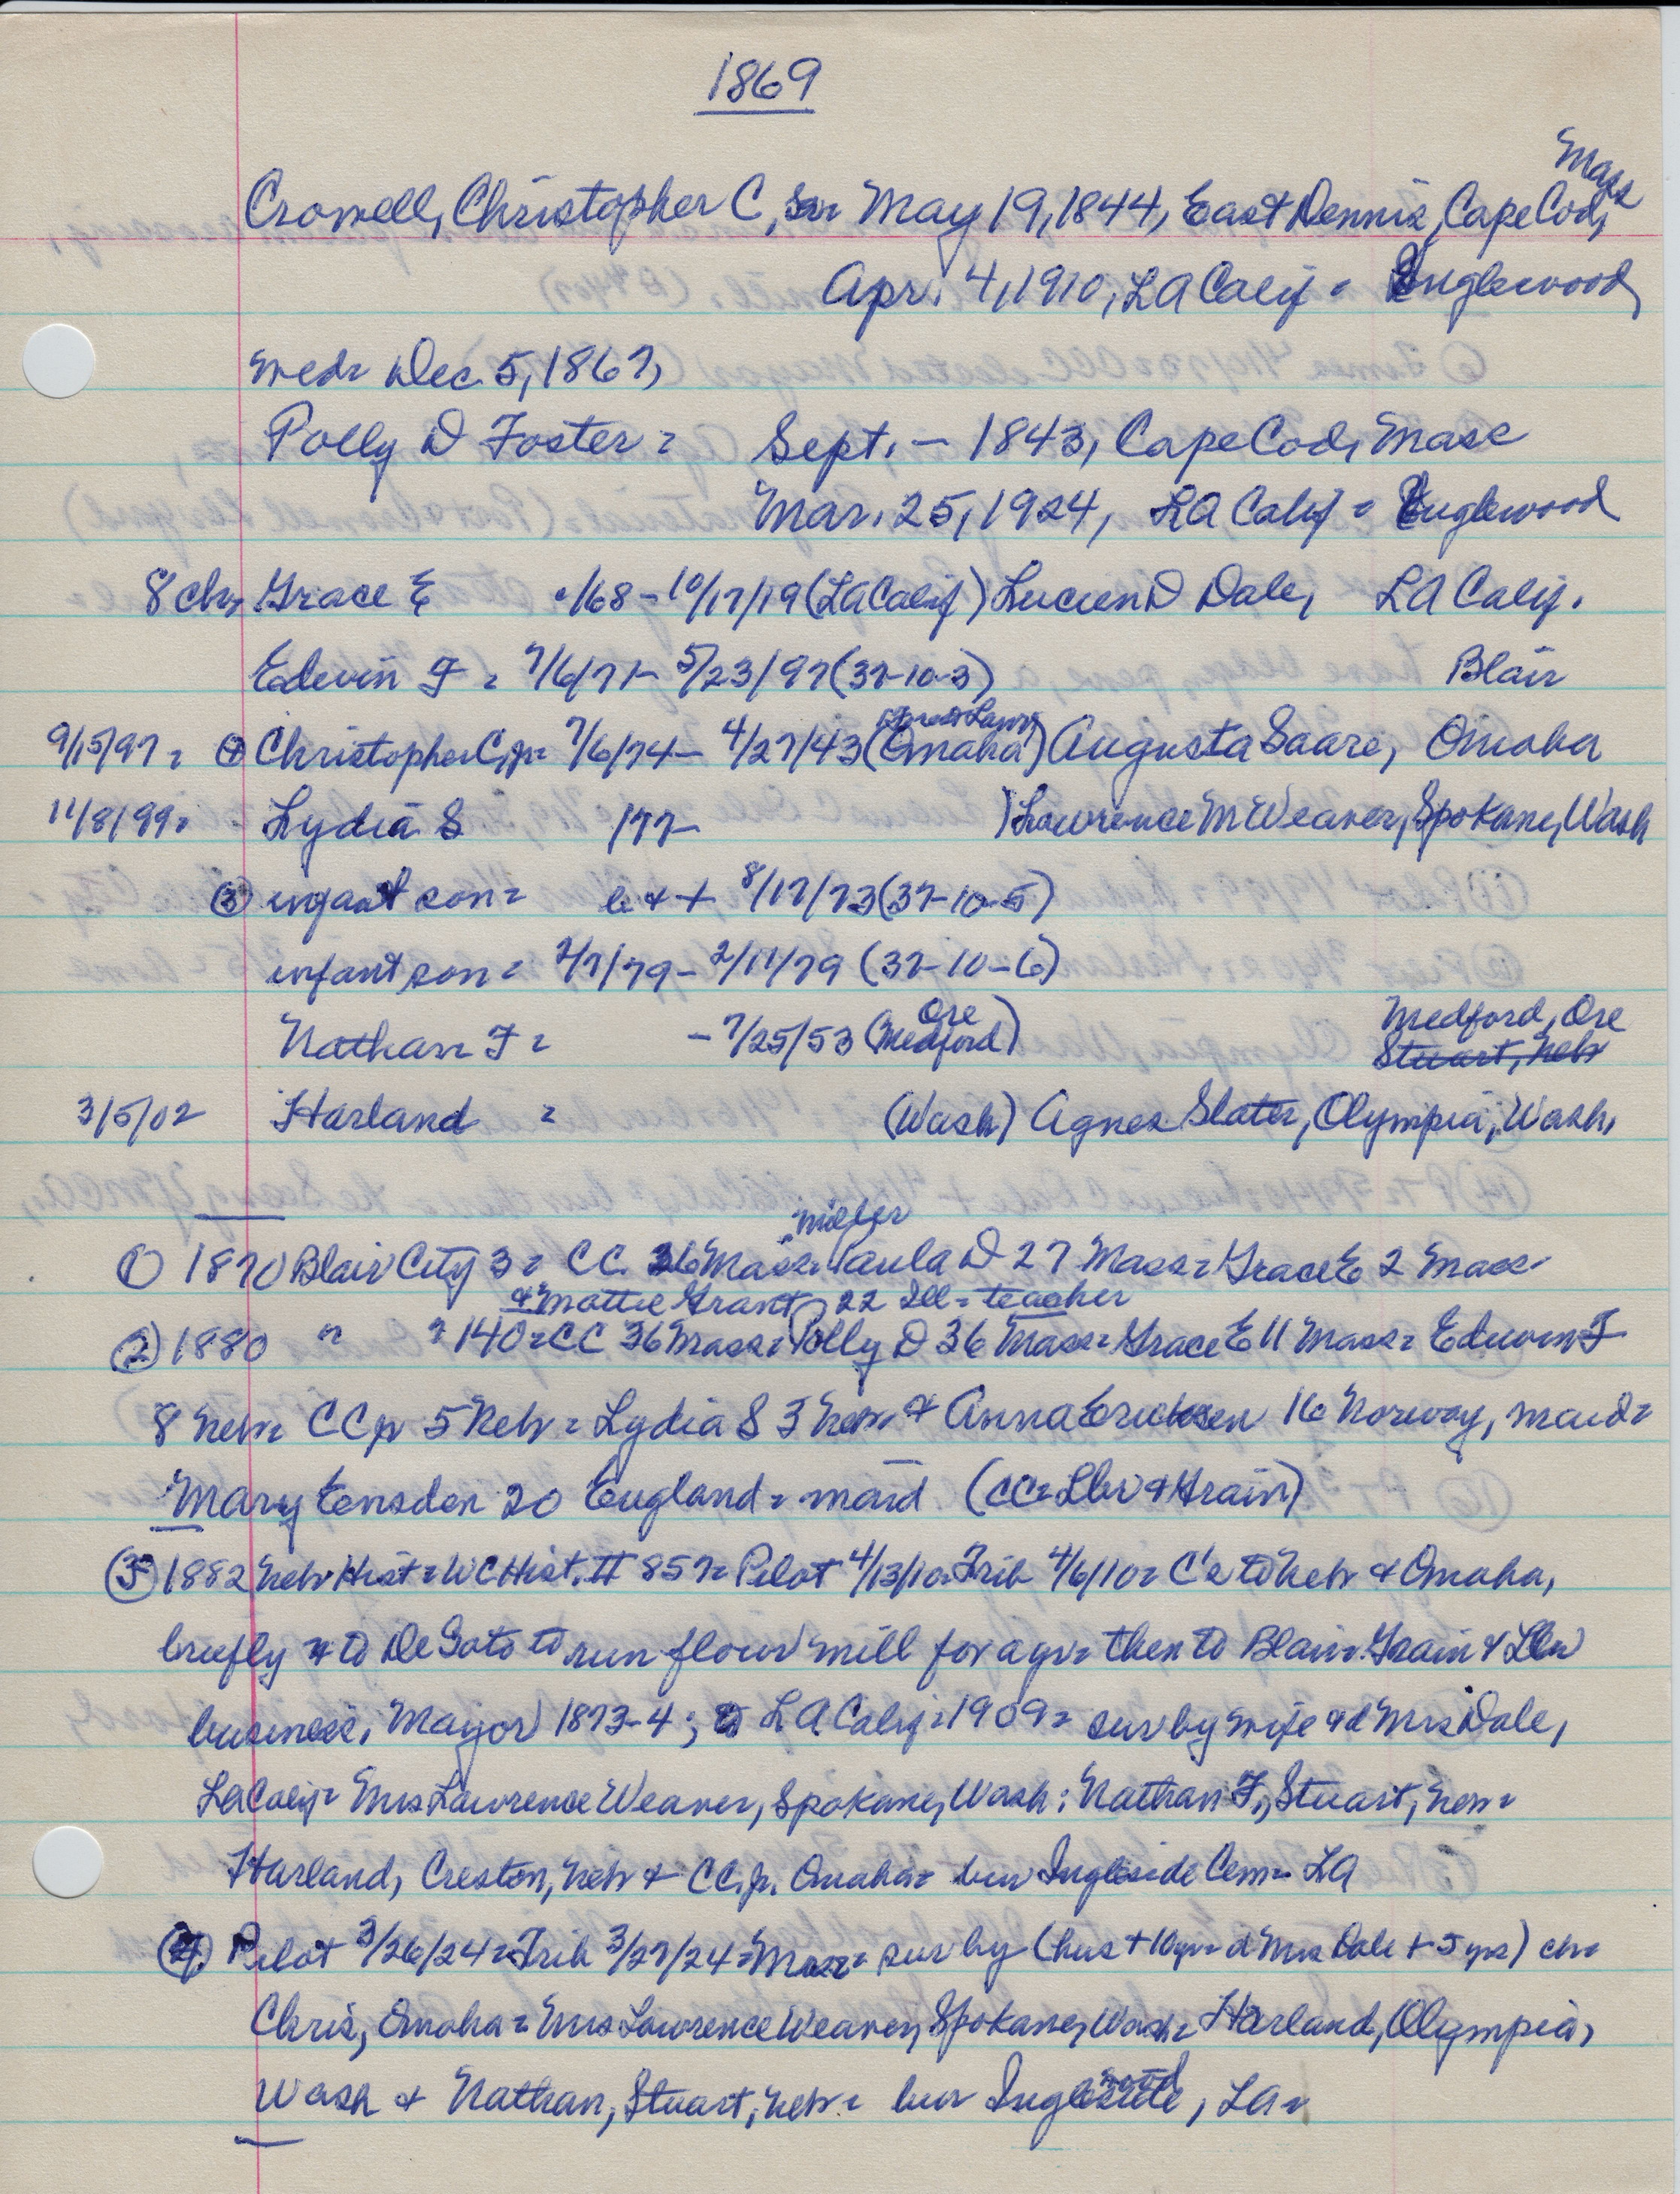 1869
Mass
Crowell, Christopher C, Sr = May 19, 1844, East Dennis, Cape Cod,
Apr. 4, 1910, LA Calif = Inglewood
med= Dec. 5, 1867,
Polly D Foster = Sept. — 1843, Cape Cod, Mass
Mar. 25, 1924, LA Calif = Inglewood
8 ch= Grace E /68 – 10/17/19 (LA Calif) Lucien D Dale, LA Calif.
Edwin F = 7/6/71 – 5/23/97 (37-10-3) Blair
Forest Lawn
9/15/97 = ④ Christopher C, jr = 7/6/74 – 4/27/43 (Omaha) Augusta Saare, Omaha
11/8/99 = Lydia S /77 – ) Lawrence M Weaver, Spokane, Wash
③ infant son = b & + 8/17/73 (37-10-5)
infant son = 2/7/79 – 2/11/79 (37-10-6)
Ore Medford, Ore
Nathan F = – 7/25/53 (Medford) Stuart, Neb
3/5/02 Harland = (Wash) Agnes Slater, Olympia, Wash.
miller
① 1870 Blair City 3 = CC. 26 Mass = Paula D 27 Mass = Grace E 2 Mass
& Mattie Grant, 22 Ill = teacher
② 1880 " " 140 = CC 36 Mass = Polly D 36 Mass = Grace E 11 Mass = Edwin F
8 Neb = CC jr 5 Neb = Lydia S 3 Neb = & Anna Ericksen 16 Norway, maid =
Mary Eensden 20 England = maid (CC = Lbr & Grain)
③ 1882 Neb Hist = WC Hist. II 857 = Pilot 4/13/10 = Trib 4/6/10 = C's to Neb & Omaha,
briefly & to DeSoto to run flour mill for a yr = then to Blair = Grain & Lbr
business, Mayor 1873-4; LA Calif = 1909 = sur by wife & d Mrs Dale,
LA Calif = Mrs Lawrence Weaver, Spokane, Wash; Nathan F., Stuart, Neb =
Harland, Creston, Neb & CC. jr. Omaha = bur Ingleside Cem = LA
④ Pilot 3/26/24 = Trib 3/27/24 = Mass = sur by (hus + 10 yrs = d Mrs Dale + 5 yrs) ch =
Chris, Omaha = Mrs Lawrence Weaver, Spokane, Wash = Harland, Olympia,
wood
Wash & Nathan, Stuart, Neb = bur Ingleside, LA =